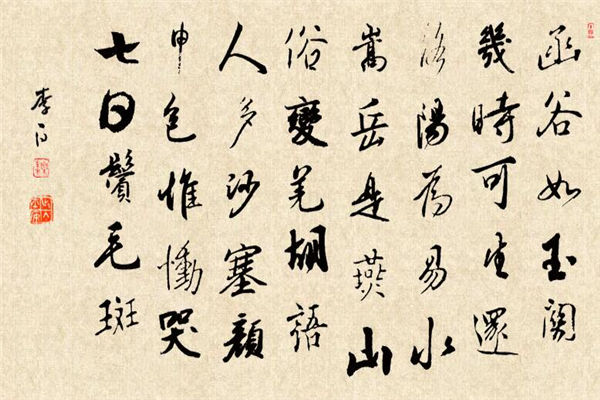 函谷如玉關
幾時可生還
洛陽為易水
嵩岳是燕山
俗變羌胡語
人多沙塞顏
申包惟慟哭
七日鬢毛斑
李白